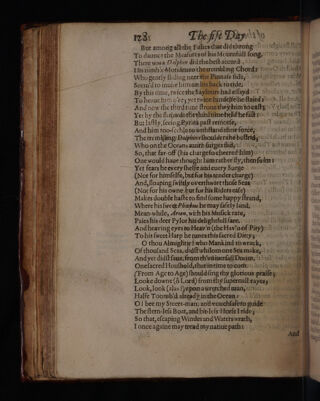 128
The fift Day
But among all the Fishes that did throng
To daunce the Measures of his Mournfull song,
There was a Dolphin did the best accord
His nimble Motions to the trembling Chord:
Who gently sliding neer the Pinnass side,
Seem'd to invite him on his back to ride.
By this time, twice the Saylers had assayd
To heave him o're; yet twice himselfe he staid:
And now the third time strove they him to cast
Yet by the shrouds the third time held he fast
But lastly, seeing Pyrats past remorse,
And him too-feeble to withstand their force,
The trembling Dolphins shoulders he bestrid,
Who on the Oceans azure surges slid,
So, that far-off (his charge so cheered him)
One would have thought him rather fly, then swim:
Yet fears he every shelfe and every Surge
(Not for himselfe, but for his tender charge)
And, sloaping swiftly overthwart those Seas
(Not for his owne but for his Riders ease)
Makes double haste to find some happy strand,
Where his sweet Phœbus he may safely land.
Mean-while, Arion, with his Musick rare,
Paies his deer Pylot his delightfull fare.
And heaving eyes to Heav'n (the Hav'n of Pity)
To his sweet Harp he tunes this sacred Ditty;
O thou Almighty! who Mankind to wrack,
Of thousand Seas, didst whilom one Sea make,
And yet didst save, from th'universall Doom,
One sacred Houshold, that in time to com
(From Age to Age) should sing thy glorious praise;
Looke downe (ô Lord) from thy supernall rayes,
Look, look (alas!) upon a wretched man,
Halfe Toomb'd already in the Ocean:
O! bee my Steers-man, and vouchsafe to guide
The stern-less Boat, and bit-less Horse I ride;
So that, escaping Windes and Waters wrath,
I once againe may tread my native path:
And